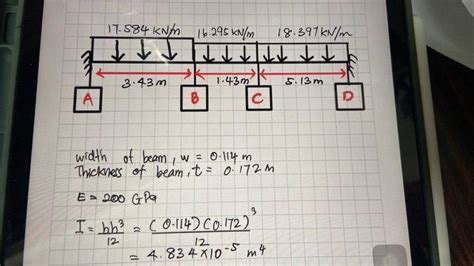 17.584 kN/m 16.295 kN/m 18.397 kN/m
3.43m 1.43m 5.13m
A B C D
width of beam, w = 0.114 m
Thickness of beam, t = 0.172 m
E = 200 GPa
I = bh³/12 = (0.114)(0.172)³/12
= 4.834 × 10⁻⁵ m⁴